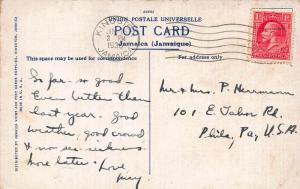 UNION POSTALE UNIVERSELLE
POST CARD
Jamaica (Jamaique)
This space may be used for correspondence
For address only
So far - so good -
Even better than
last year. Good
weather, good crowd
& no sea-sickness
more later - Love
Mr & Mrs. P. Herrmann
101 E. Tabor Rd.
Phila, Pa, U.S.A.
KINGSTON
JAMAICA